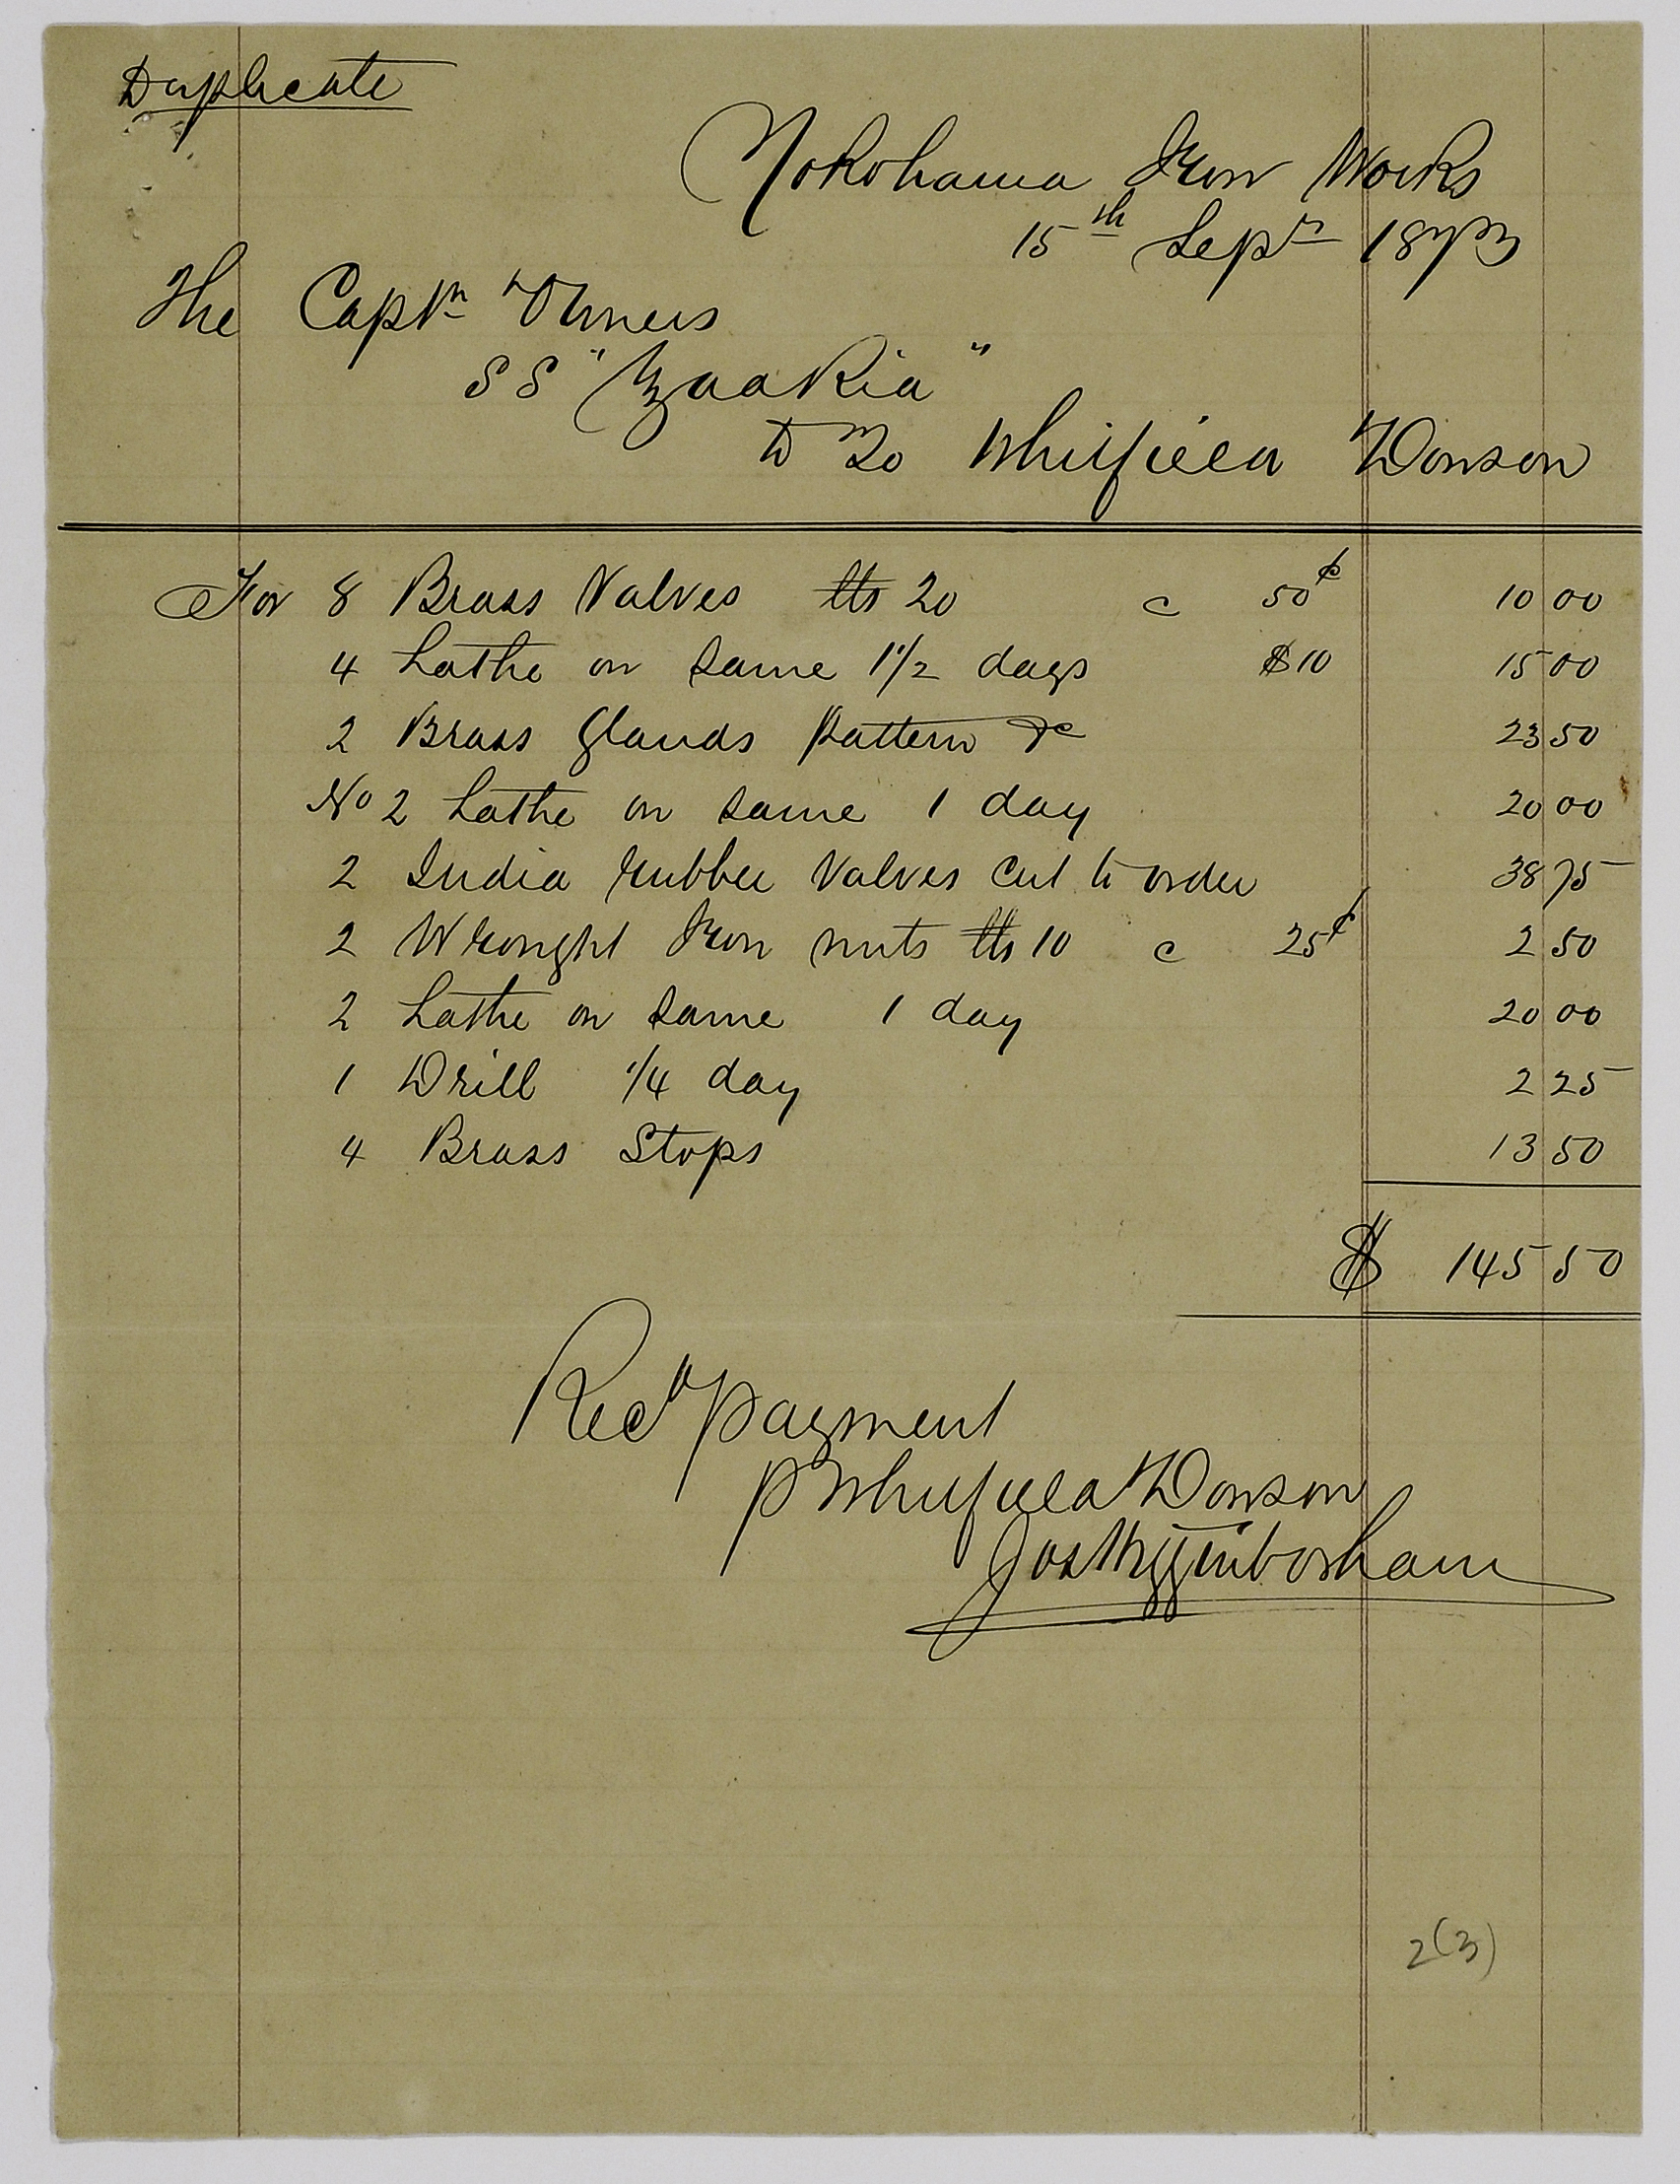 Duplicate
Yokohama Iron Works
15th Septr 1873
The Captn & Owners
SS "Yaakia"
To Whitfield & Dowson
For 8 Brass Valves lbs 20 @ 50¢ 10 00
4 Lathe on same 1 1/2 days $10 15 00
2 Brass Glands Pattern &c 23 50
No 2 Lathe on same 1 day 20 00
2 India rubber Valves cut to order 38 75
2 Wrought Iron nuts lbs 10 @ 25¢ 2 50
2 Lathe on same 1 day 20 00
1 Drill 1/4 day 2 25
4 Brass Stops 13 50
$ 145 50
Recd payment
p Whitfield & Dowson
Jos Higginbotham
2(3)